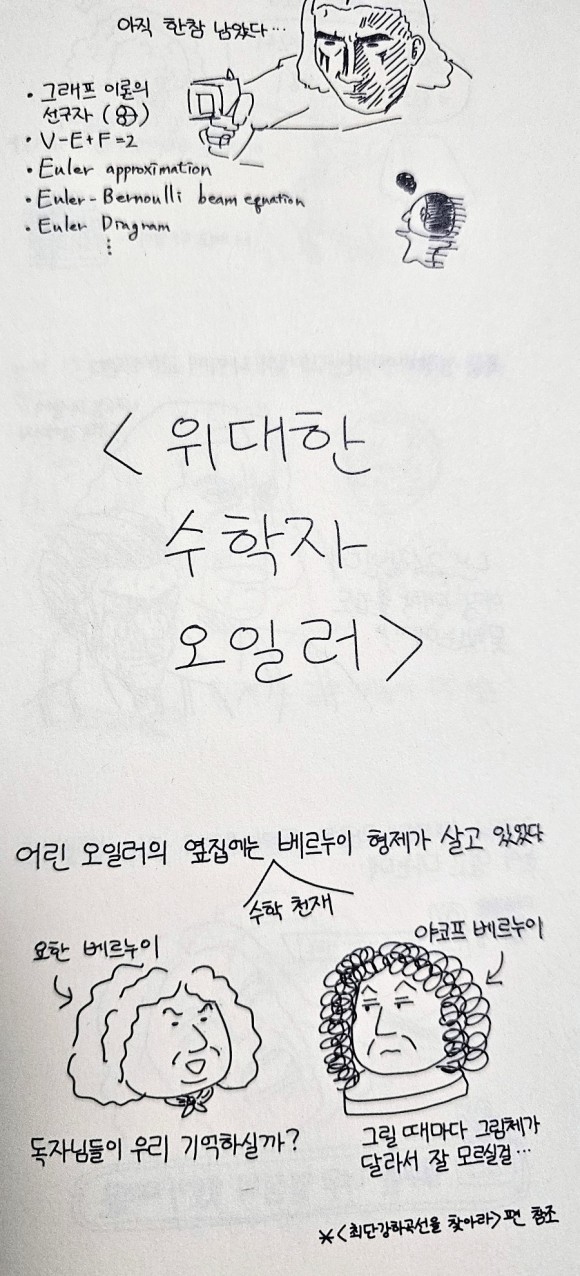 아직 한참 남았다…
• 그래프 이론의
선구자 (
)
• V-E+F=2
• Euler approximation
• Euler-Bernoulli beam equation
• Euler Diagram
⋮
<위대한
수학자
오일러>
어린 오일러의 옆집에는 베르누이 형제가 살고 있었다
수학 천재
요한 베르누이
야코프 베르누이
독자님들이 우리 기억하실까?
그릴 때마다 그림체가
달라서 잘 모르실걸…
*<최단강하곡선을 찾아라> 편 참조